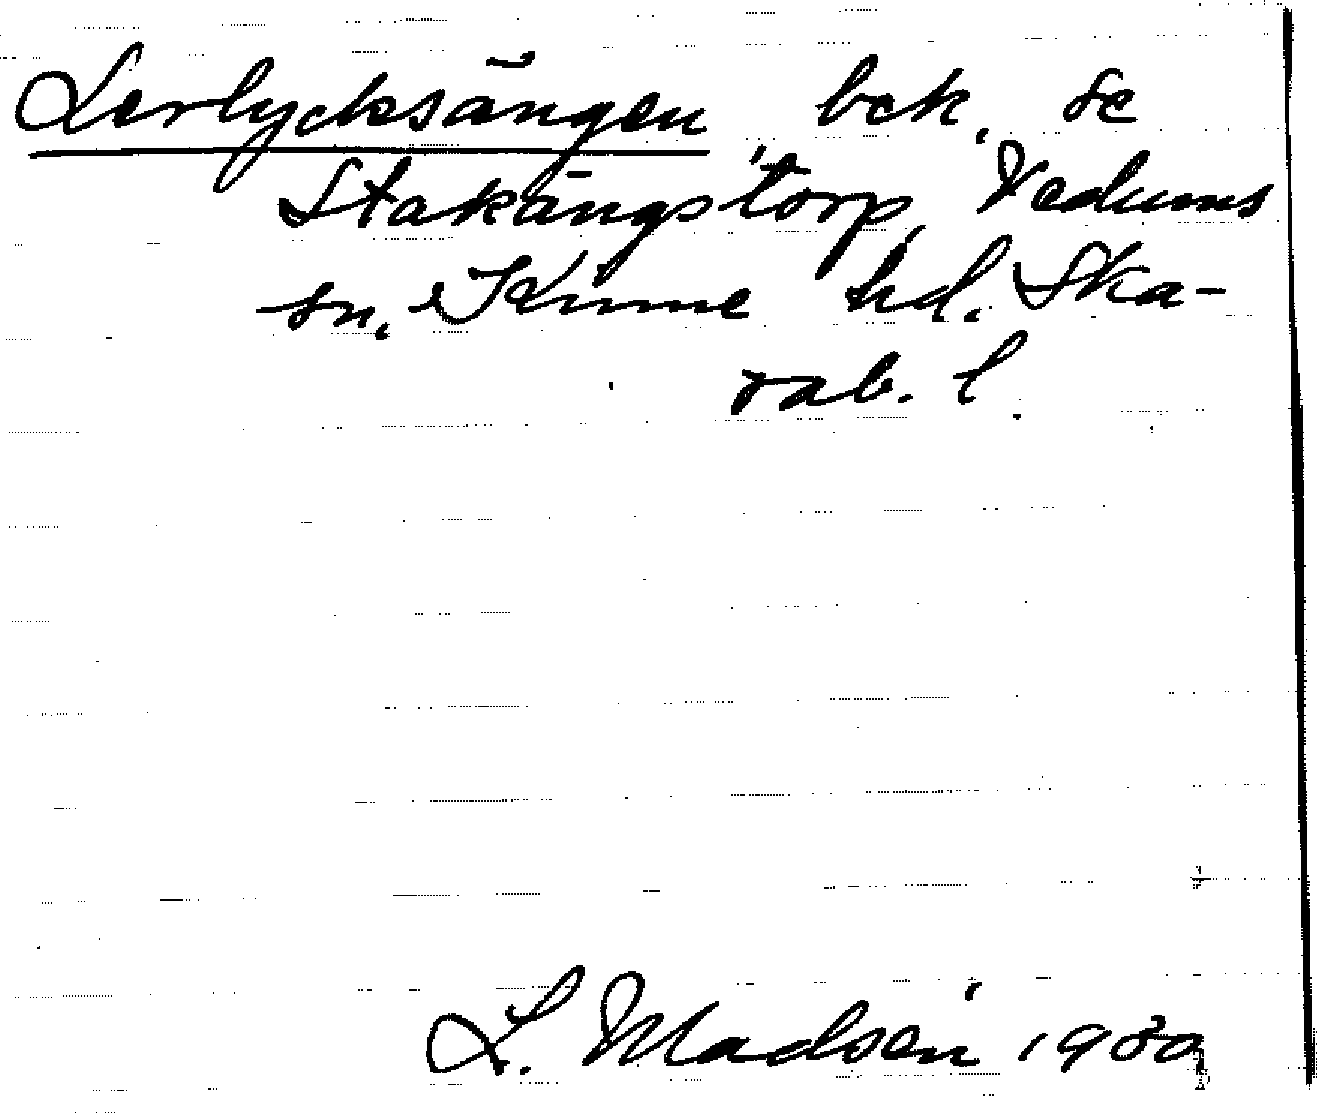 Lerlycksängen bek, se
Stakängstorp, Vedums
sn, Kinne hd. Ska-
rab. l.
L. Madsén 1930